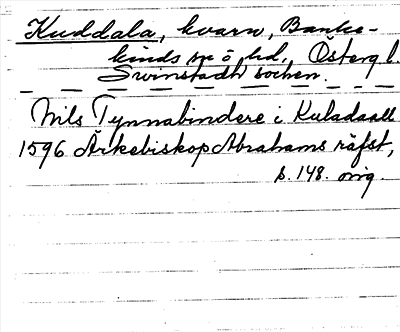 Kuddala, kvarn, Banke-
kinds sn o hd, Österg l.
Swinstadh socken.
Nils Tynnabindere i Kuladaall
1596 Ärkebiskop Abrahams räfst,
s. 148. orig.